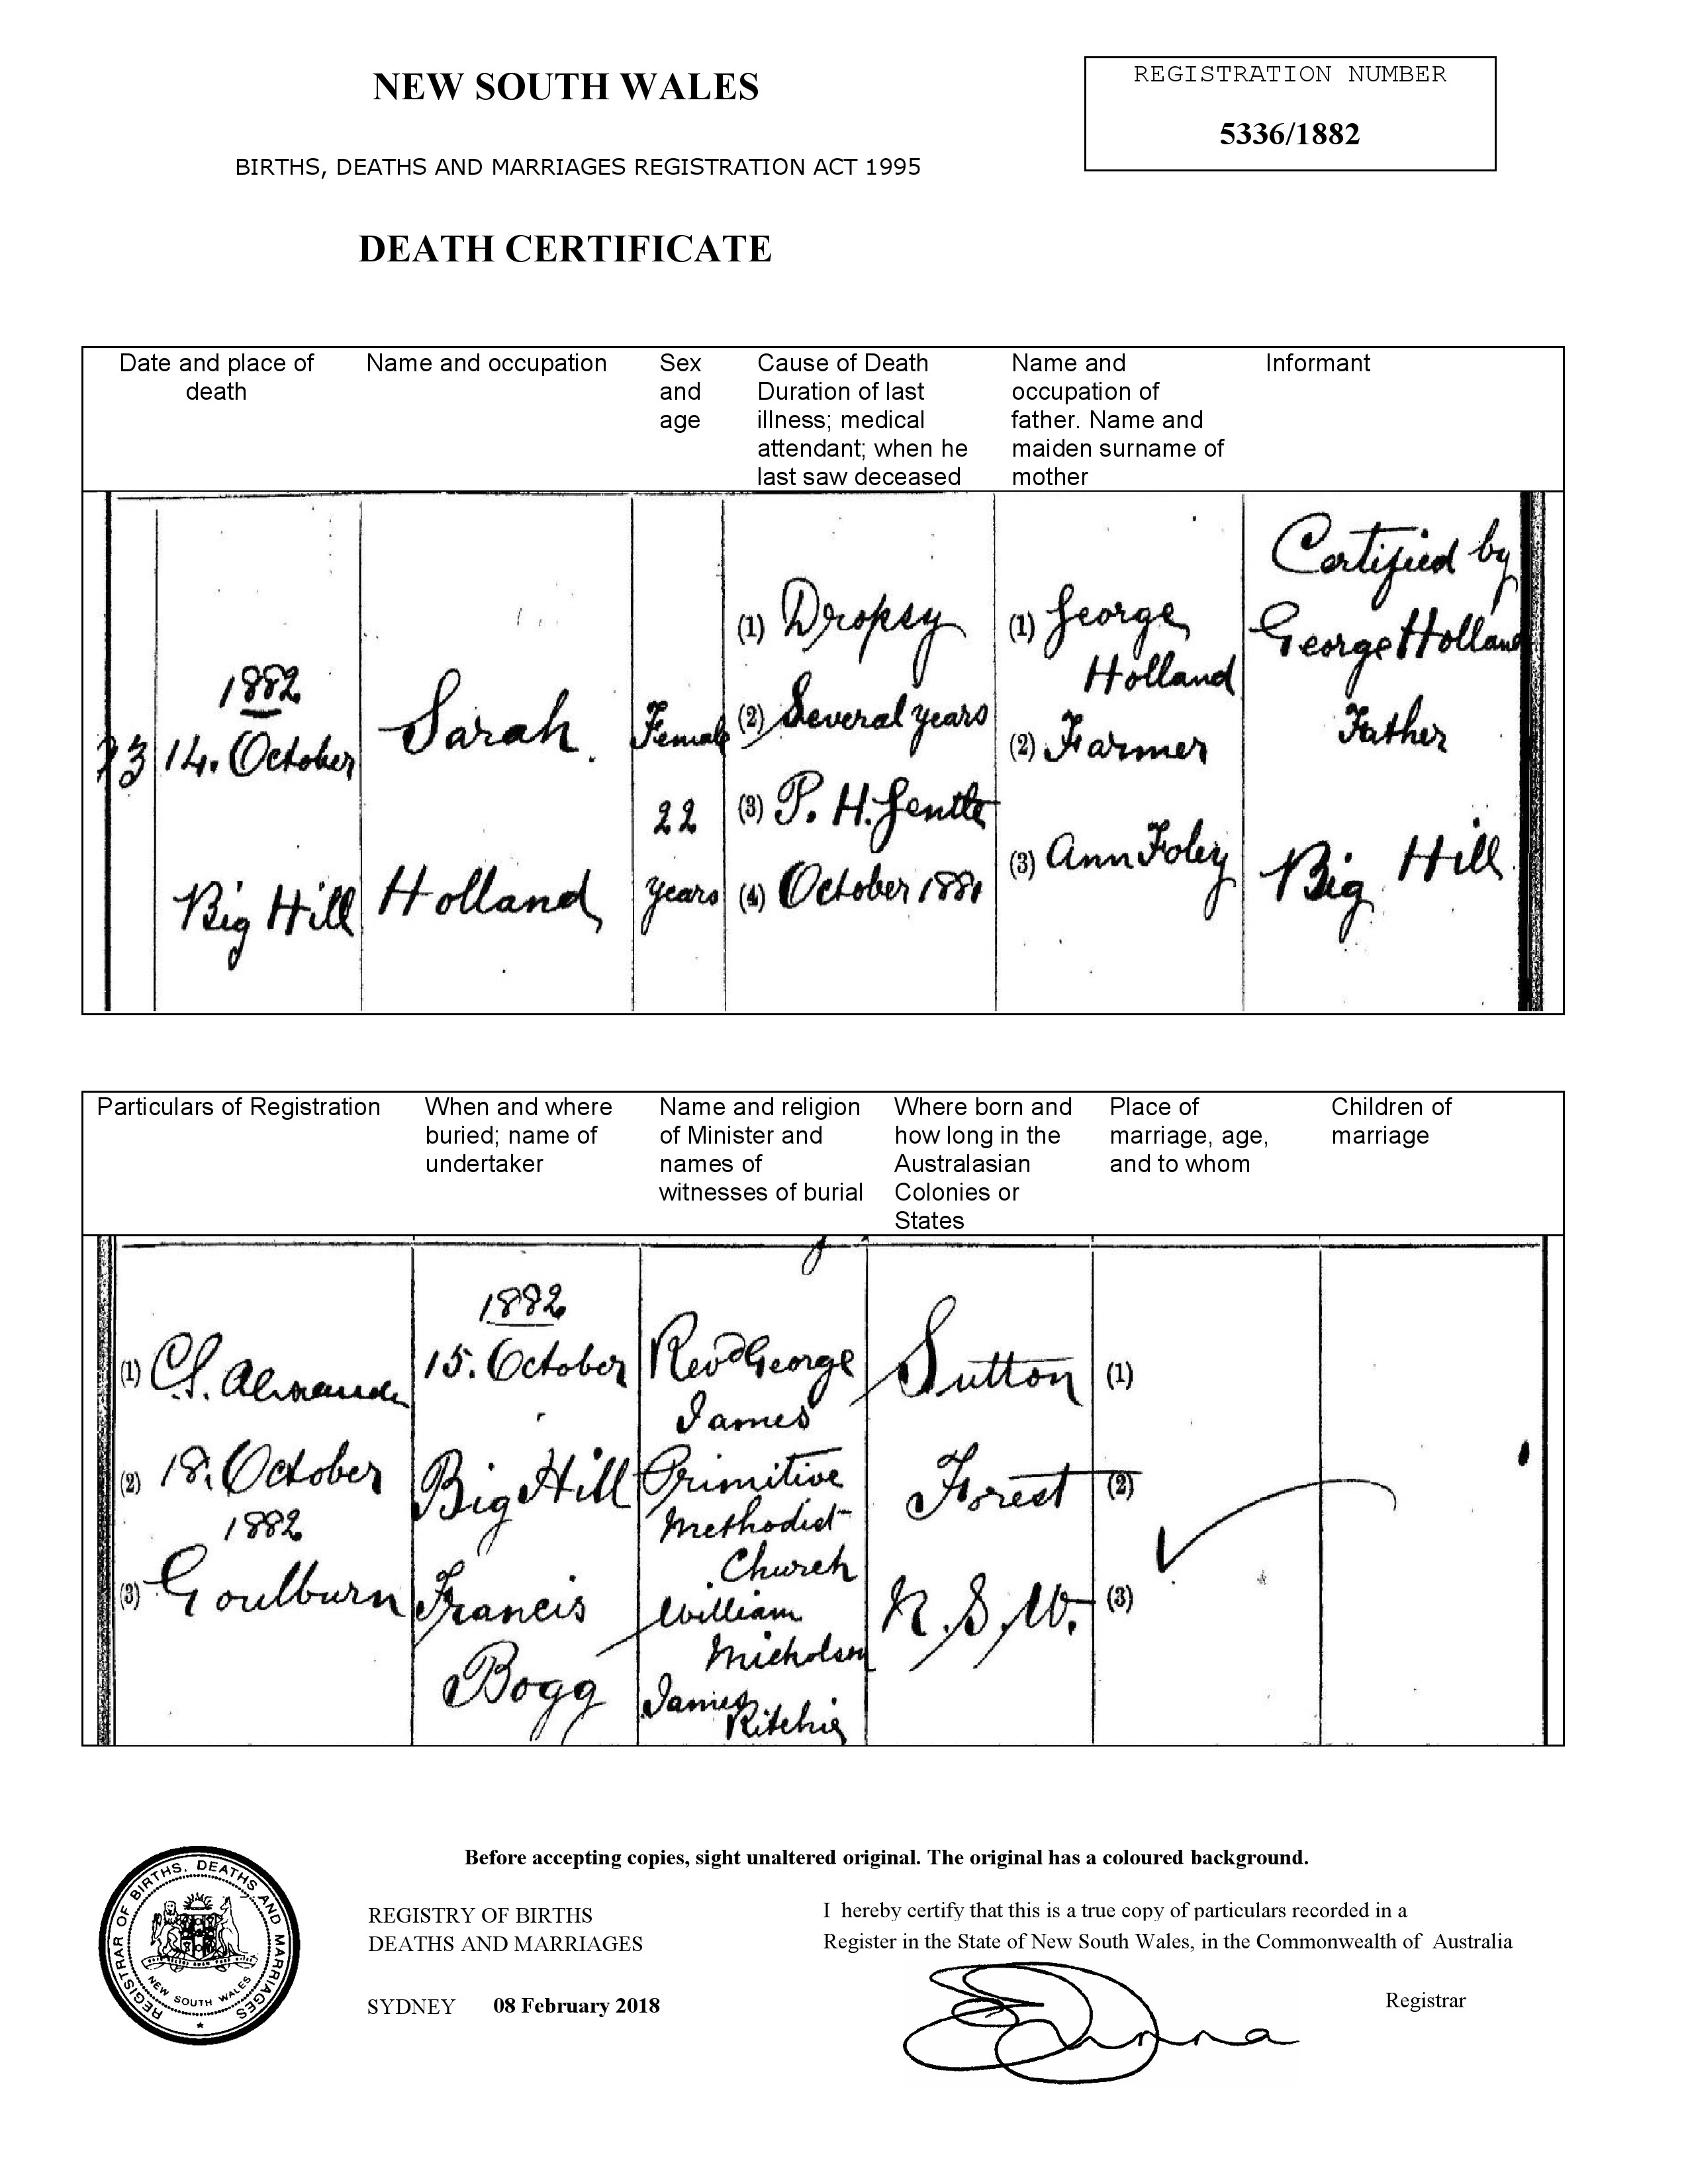 NEW SOUTH WALES
REGISTRATION NUMBER
5336/1882
BIRTHS, DEATHS AND MARRIAGES REGISTRATION ACT 1995
DEATH CERTIFICATE
Date and place of
death
Name and occupation
Sex
and
age
Cause of Death
Duration of last
illness; medical
attendant; when he
last saw deceased
Name and
occupation of
father. Name and
maiden surname of
mother
Informant
1882
14. October
Big Hill
Sarah
Holland
Female
22
years
(1) Dropsy
(2) Several years
(3) P. H. Gentle
(4) October 1881
(1) George
Holland
(2) Farmer
(3) Ann Foley
Certified by
George Holland
Father
Big Hill
Particulars of Registration
When and where
buried; name of
undertaker
Name and religion
of Minister and
names of
witnesses of burial
Where born and
how long in the
Australasian
Colonies or
States
Place of
marriage, age,
and to whom
Children of
marriage
(1)
(2) 18. October
1882
(3) Goulburn
1882
15. October
Big Hill
Francis
Bogg
Revd George
James
Primitive
Methodist
Church
William
Nicholson
James
Ritchie
Sutton
Forest
N.S.W.
(1)
(2)
(3)
Before accepting copies, sight unaltered original. The original has a coloured background.
REGISTRAR OF BIRTHS, DEATHS AND MARRIAGES
NEW SOUTH WALES
REGISTRY OF BIRTHS
DEATHS AND MARRIAGES
SYDNEY 08 February 2018
I hereby certify that this is a true copy of particulars recorded in a
Register in the State of New South Wales, in the Commonwealth of Australia
Registrar